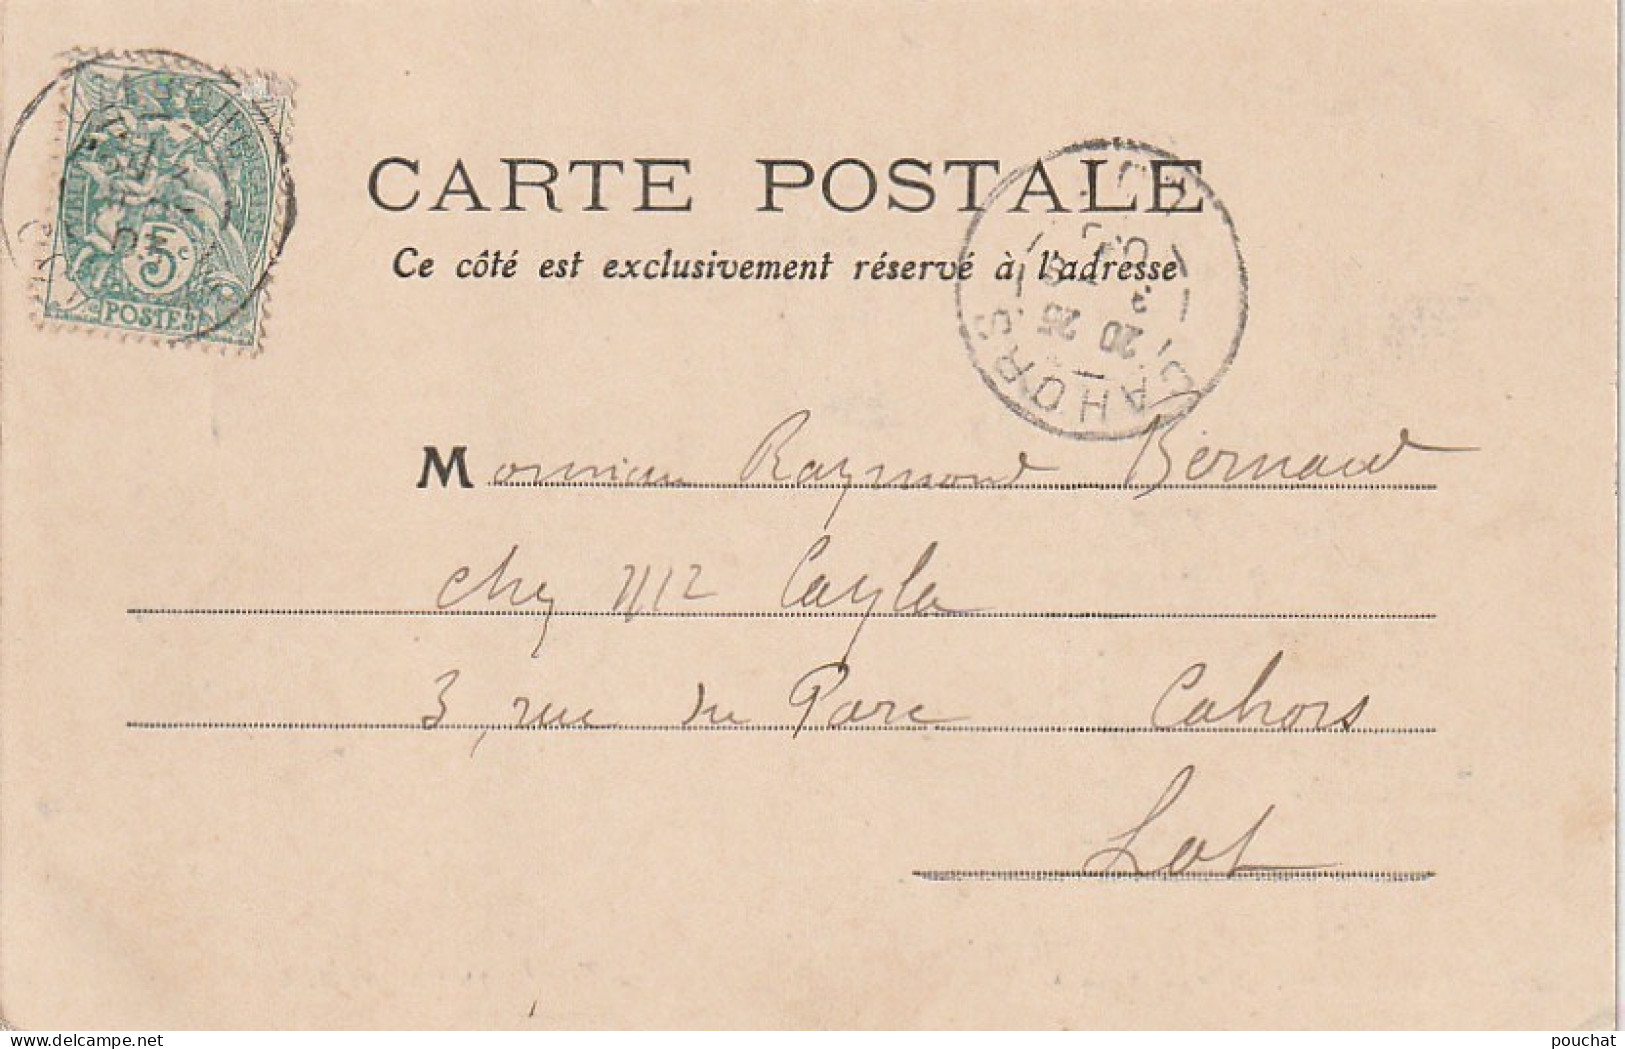 CARTE POSTALE
Ce côté est exclusivement réservé à l'adresse
RÉPUBLIQUE FRANÇAISE
5c
POSTES
CAHORS
LOT
20 25
Monsieur Raymond Bernard
chez Mlle Cayla
3, rue du Parc Cahors
Lot
pouchat